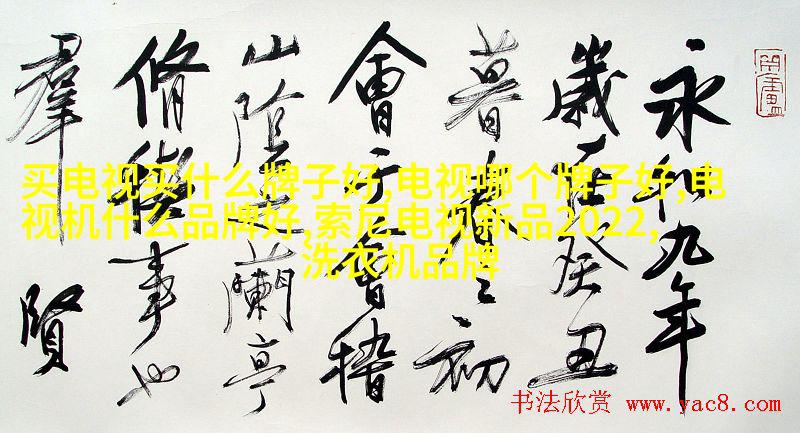 永和九年
歲在癸丑
暮春之初
會于會稽
山陰之蘭亭
脩稧事也
羣賢
买电视买什么牌子好,电视哪个牌子好,电
视机什么品牌好,索尼电视新品2022,
洗衣机品牌
书法欣赏 www.yac8.com